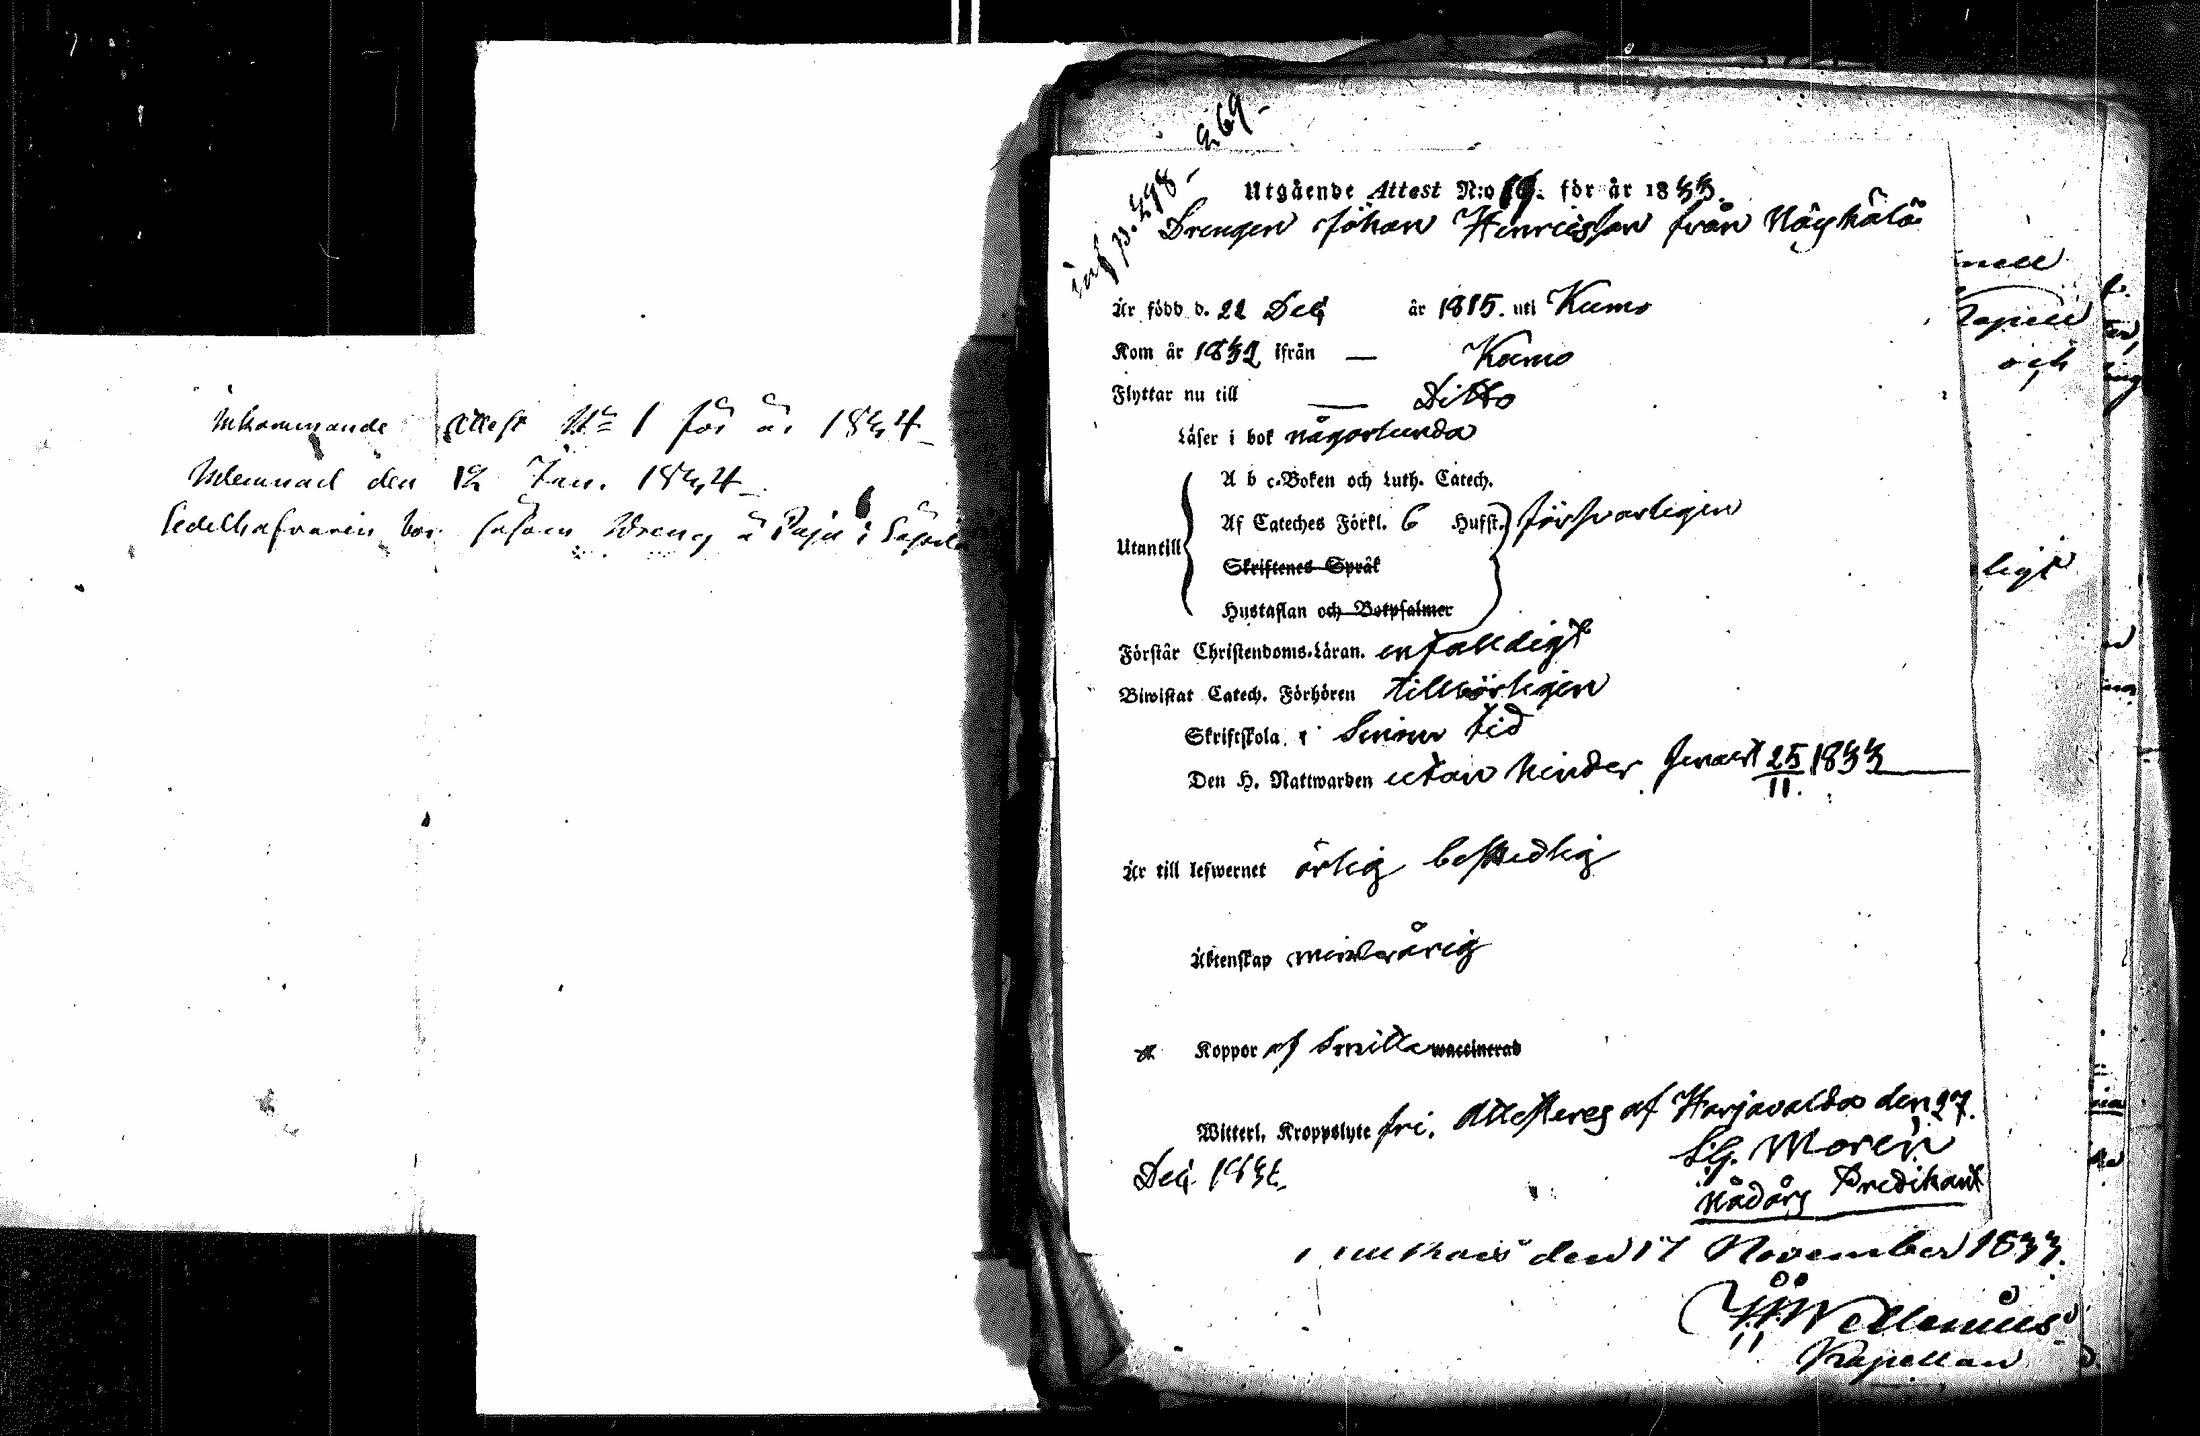 Inkommande Attest No 1 för år 1834
Inlemnad den 12 Jan. 1834
Sedelhafvaren bor såsom Dreng å Paju i
inf p. 298 - 269 -
Utgående Attest N:o 19. för år 1833.
Drengen Johan Henricsson från Näyhälä
Är född d. 22 Dec. år 1815. uti Kumo
Kom år 1832 ifrån — Kumo
Flyttar nu till — Ditto
Läser i bok någorlunda
A b c-Boken och Luth. Catech.
Af Cateches Förkl. 6 Hufst. försvarligen
Utantill
Skriftenes Språk
Hustaflan och Bokpsalmer
Förstår Christendoms-Läran. enfalldigt
Biwistat Catech. Förhören tillbörligen
Skriftskola i sinom tid
Den H. Nattwarden utan hinder senast 25/11. 1833
Är till lefwernet ärlig beskedlig
Äktenskap minderårig
Koppor af Smitta waccinerad
Witterl. Kroppslyte fri. Attesteras af Harjavalda den 27.
Dec. 1833.
S.G. Moren
Nådårs Predikant
den 17 November 1833.
Wellenius
Kapellan
nell
Kapell
och
ligt